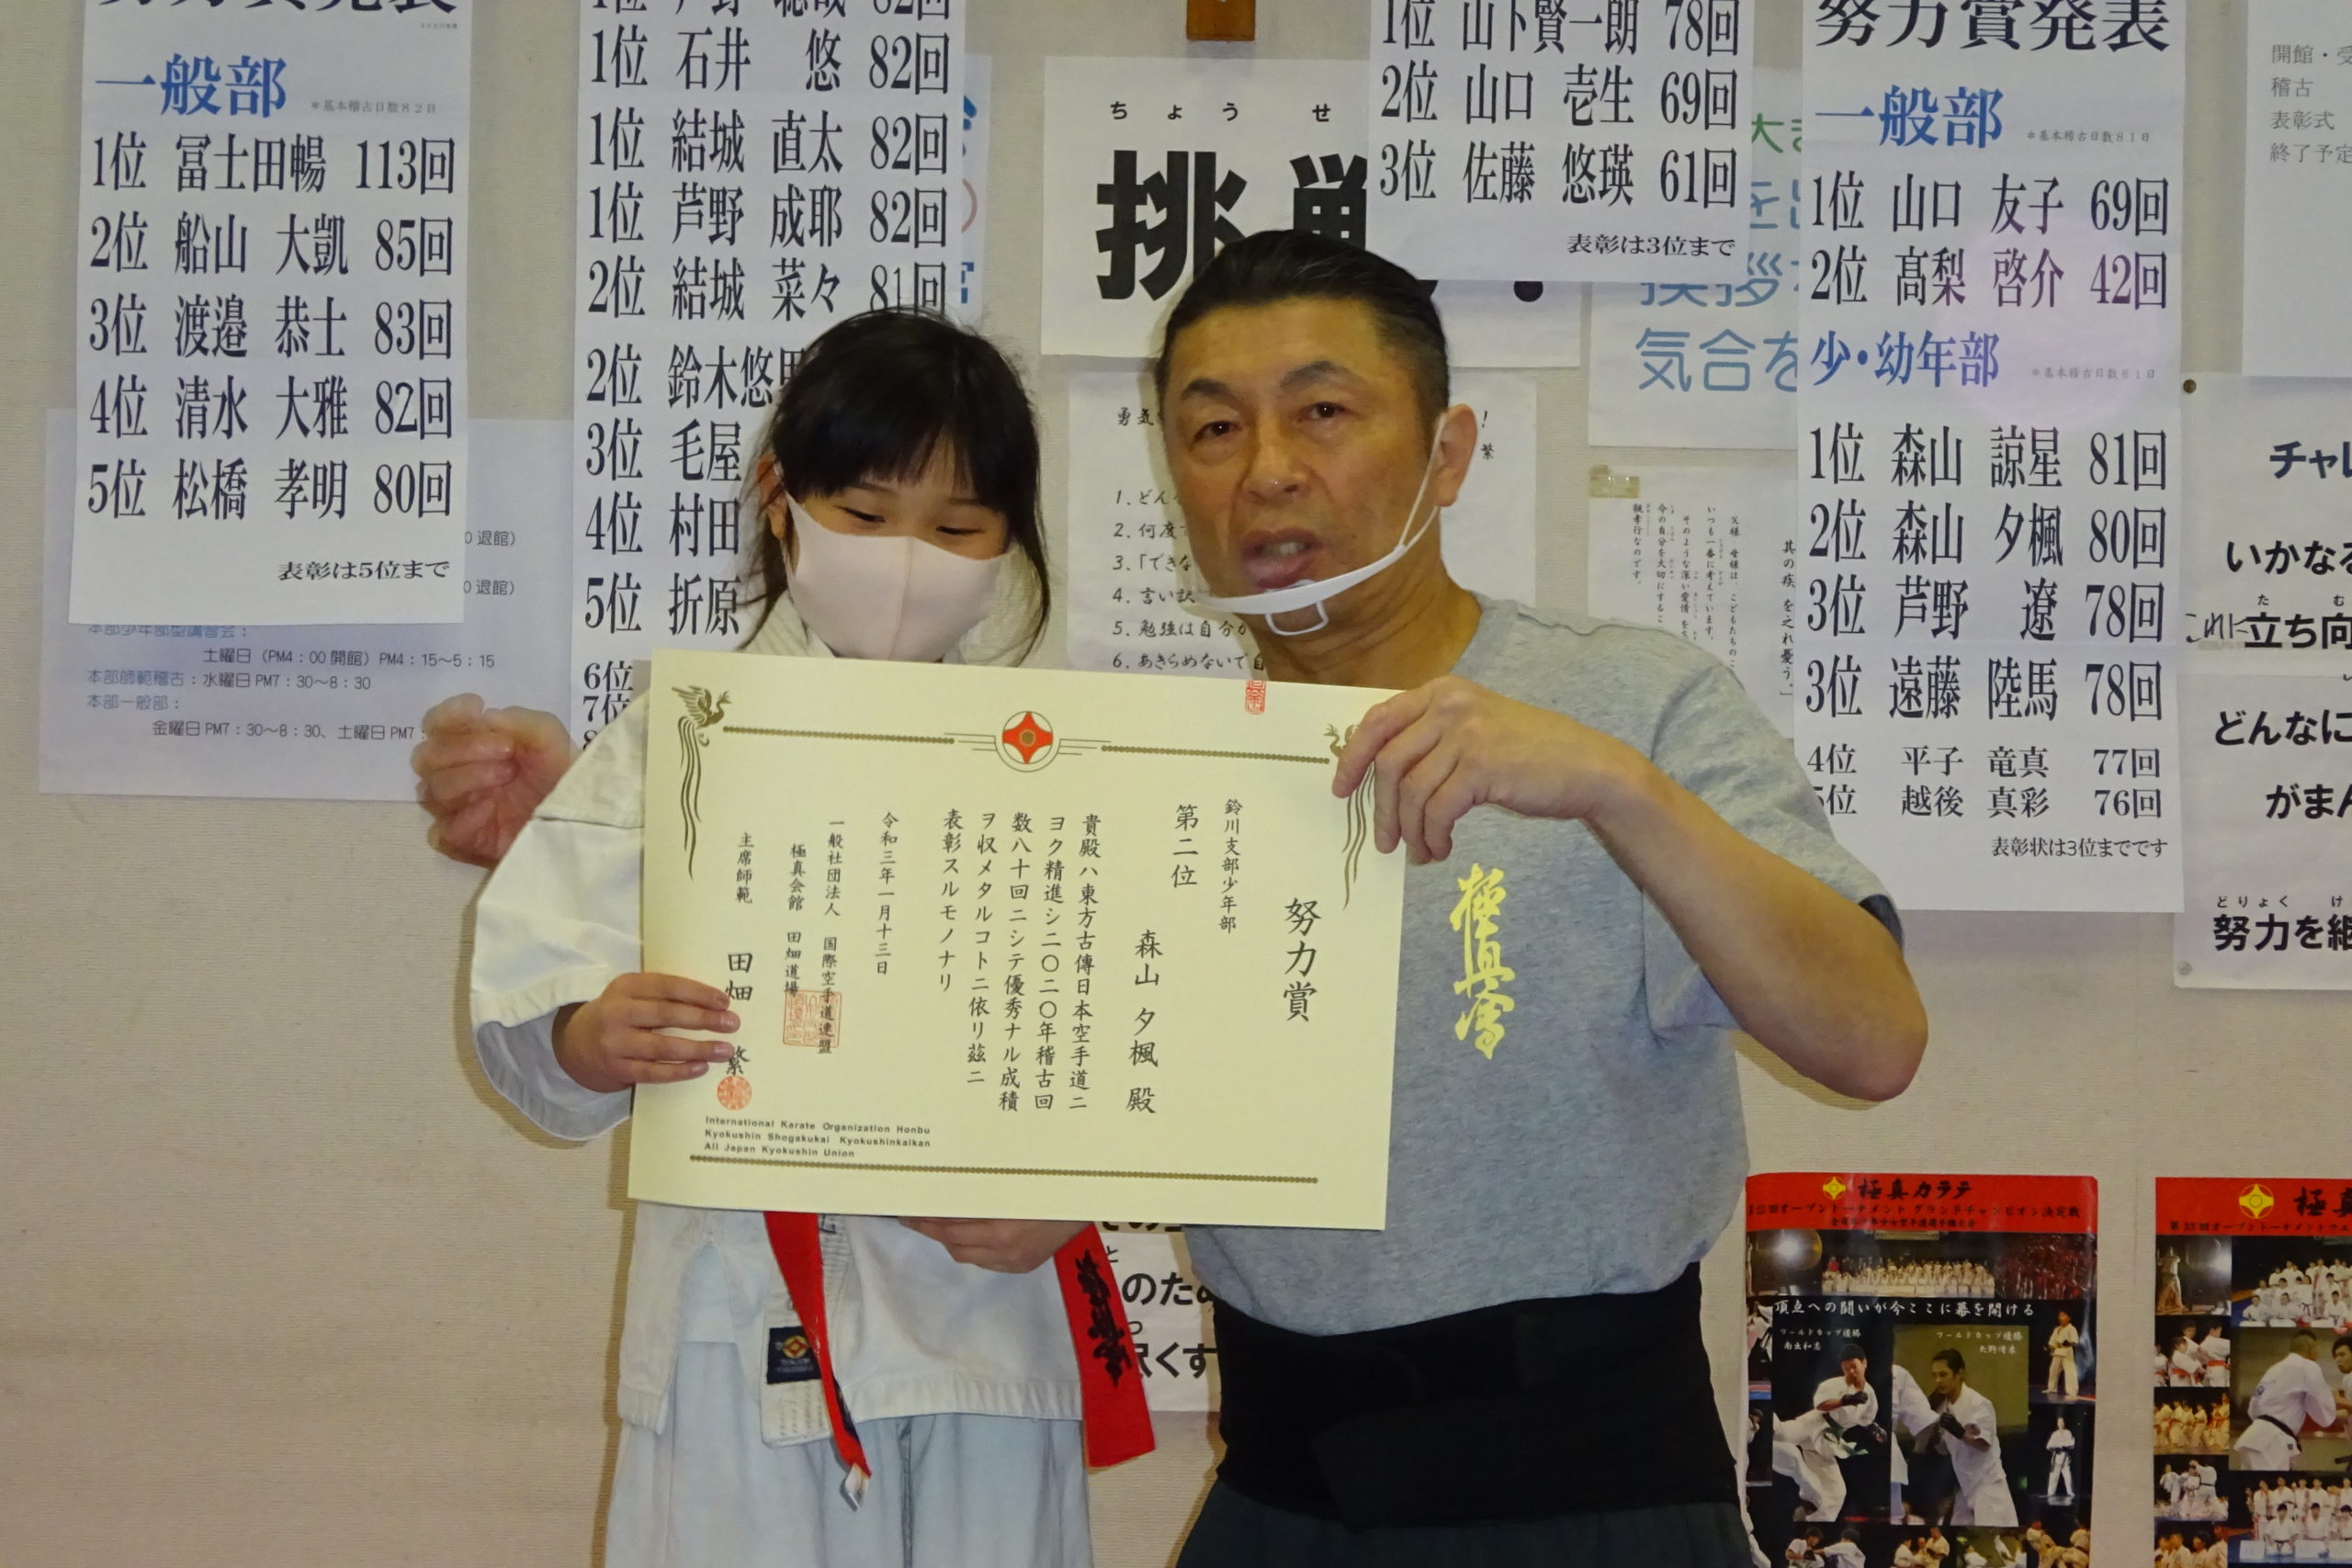 一般部
＊基本稽古日数８２日
1位 冨士田暢 113回
2位 船山 大凱 85回
3位 渡邉 恭士 83回
4位 清水 大雅 82回
5位 松橋 孝明 80回
表彰は5位まで
0退館)
0退館)
土曜日（PM4：00開館）PM4：15～5：15
本部師範稽古：水曜日PM7：30～8：30
本部一般部：
金曜日PM7：30～8：30、土曜日PM7：
1位 石井 悠 82回
1位 結城 直太 82回
1位 芦野 成耶 82回
2位 結城 菜々 81回
2位 鈴木悠
3位 毛屋
4位 村田
5位 折原
6位
7位
ちょう せ
挑
1位 山下賢一朗 78回
2位 山口 壱生 69回
3位 佐藤 悠瑛 61回
表彰は3位まで
気合を
勇気
1. どん
2. 何度
3.「できな
4. 言い訳
5. 勉強は自分
6. あきらめないで
努力賞発表
一般部
＊基本稽古日数８１日
1位 山口 友子 69回
2位 髙梨 啓介 42回
少・幼年部
＊基本稽古日数８１日
1位 森山 諒星 81回
2位 森山 夕楓 80回
3位 芦野 遼 78回
3位 遠藤 陸馬 78回
4位 平子 竜真 77回
5位 越後 真彩 76回
表彰状は3位までです
開館・受
稽古
表彰式
終了予定
チャレ
いかなる
これに立ち向
どんなに
がまん
どりょく け
努力を継
努力賞
鈴川支部少年部
第二位
森山 夕楓 殿
貴殿ハ東方古傳日本空手道ニ
ヨク精進シ二〇二〇年稽古回
数八十回ニシテ優秀ナル成積
ヲ収メタルコトニ依リ茲ニ
表彰スルモノナリ
令和三年一月十三日
一般社団法人 国際空手道連盟
極真会館 田畑道場
主席師範 田畑 繁
International Karate Organization Honbu
Kyokushin Shogakukai Kyokushinkaikan
All Japan Kyokushin Union
極真會
のため
くす
極真カラテ
オープントーナメント グランドチャンピオン決定戦
頂点への闘いが今ここに幕を開ける
ワールドカップ優勝
ワールドカップ優勝
極真